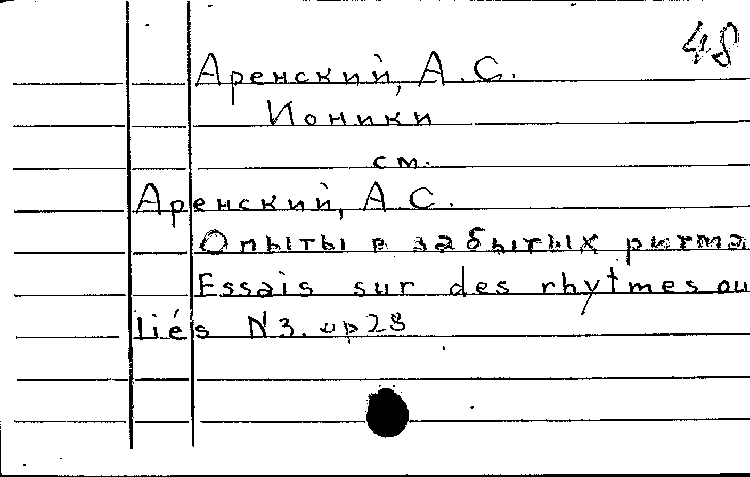 48
Аренский, А.С.
Ионики
см.
Аренский, А С.
Опыты в забытых ритма
Essais sur des rhytmes ou
liés N3. op28